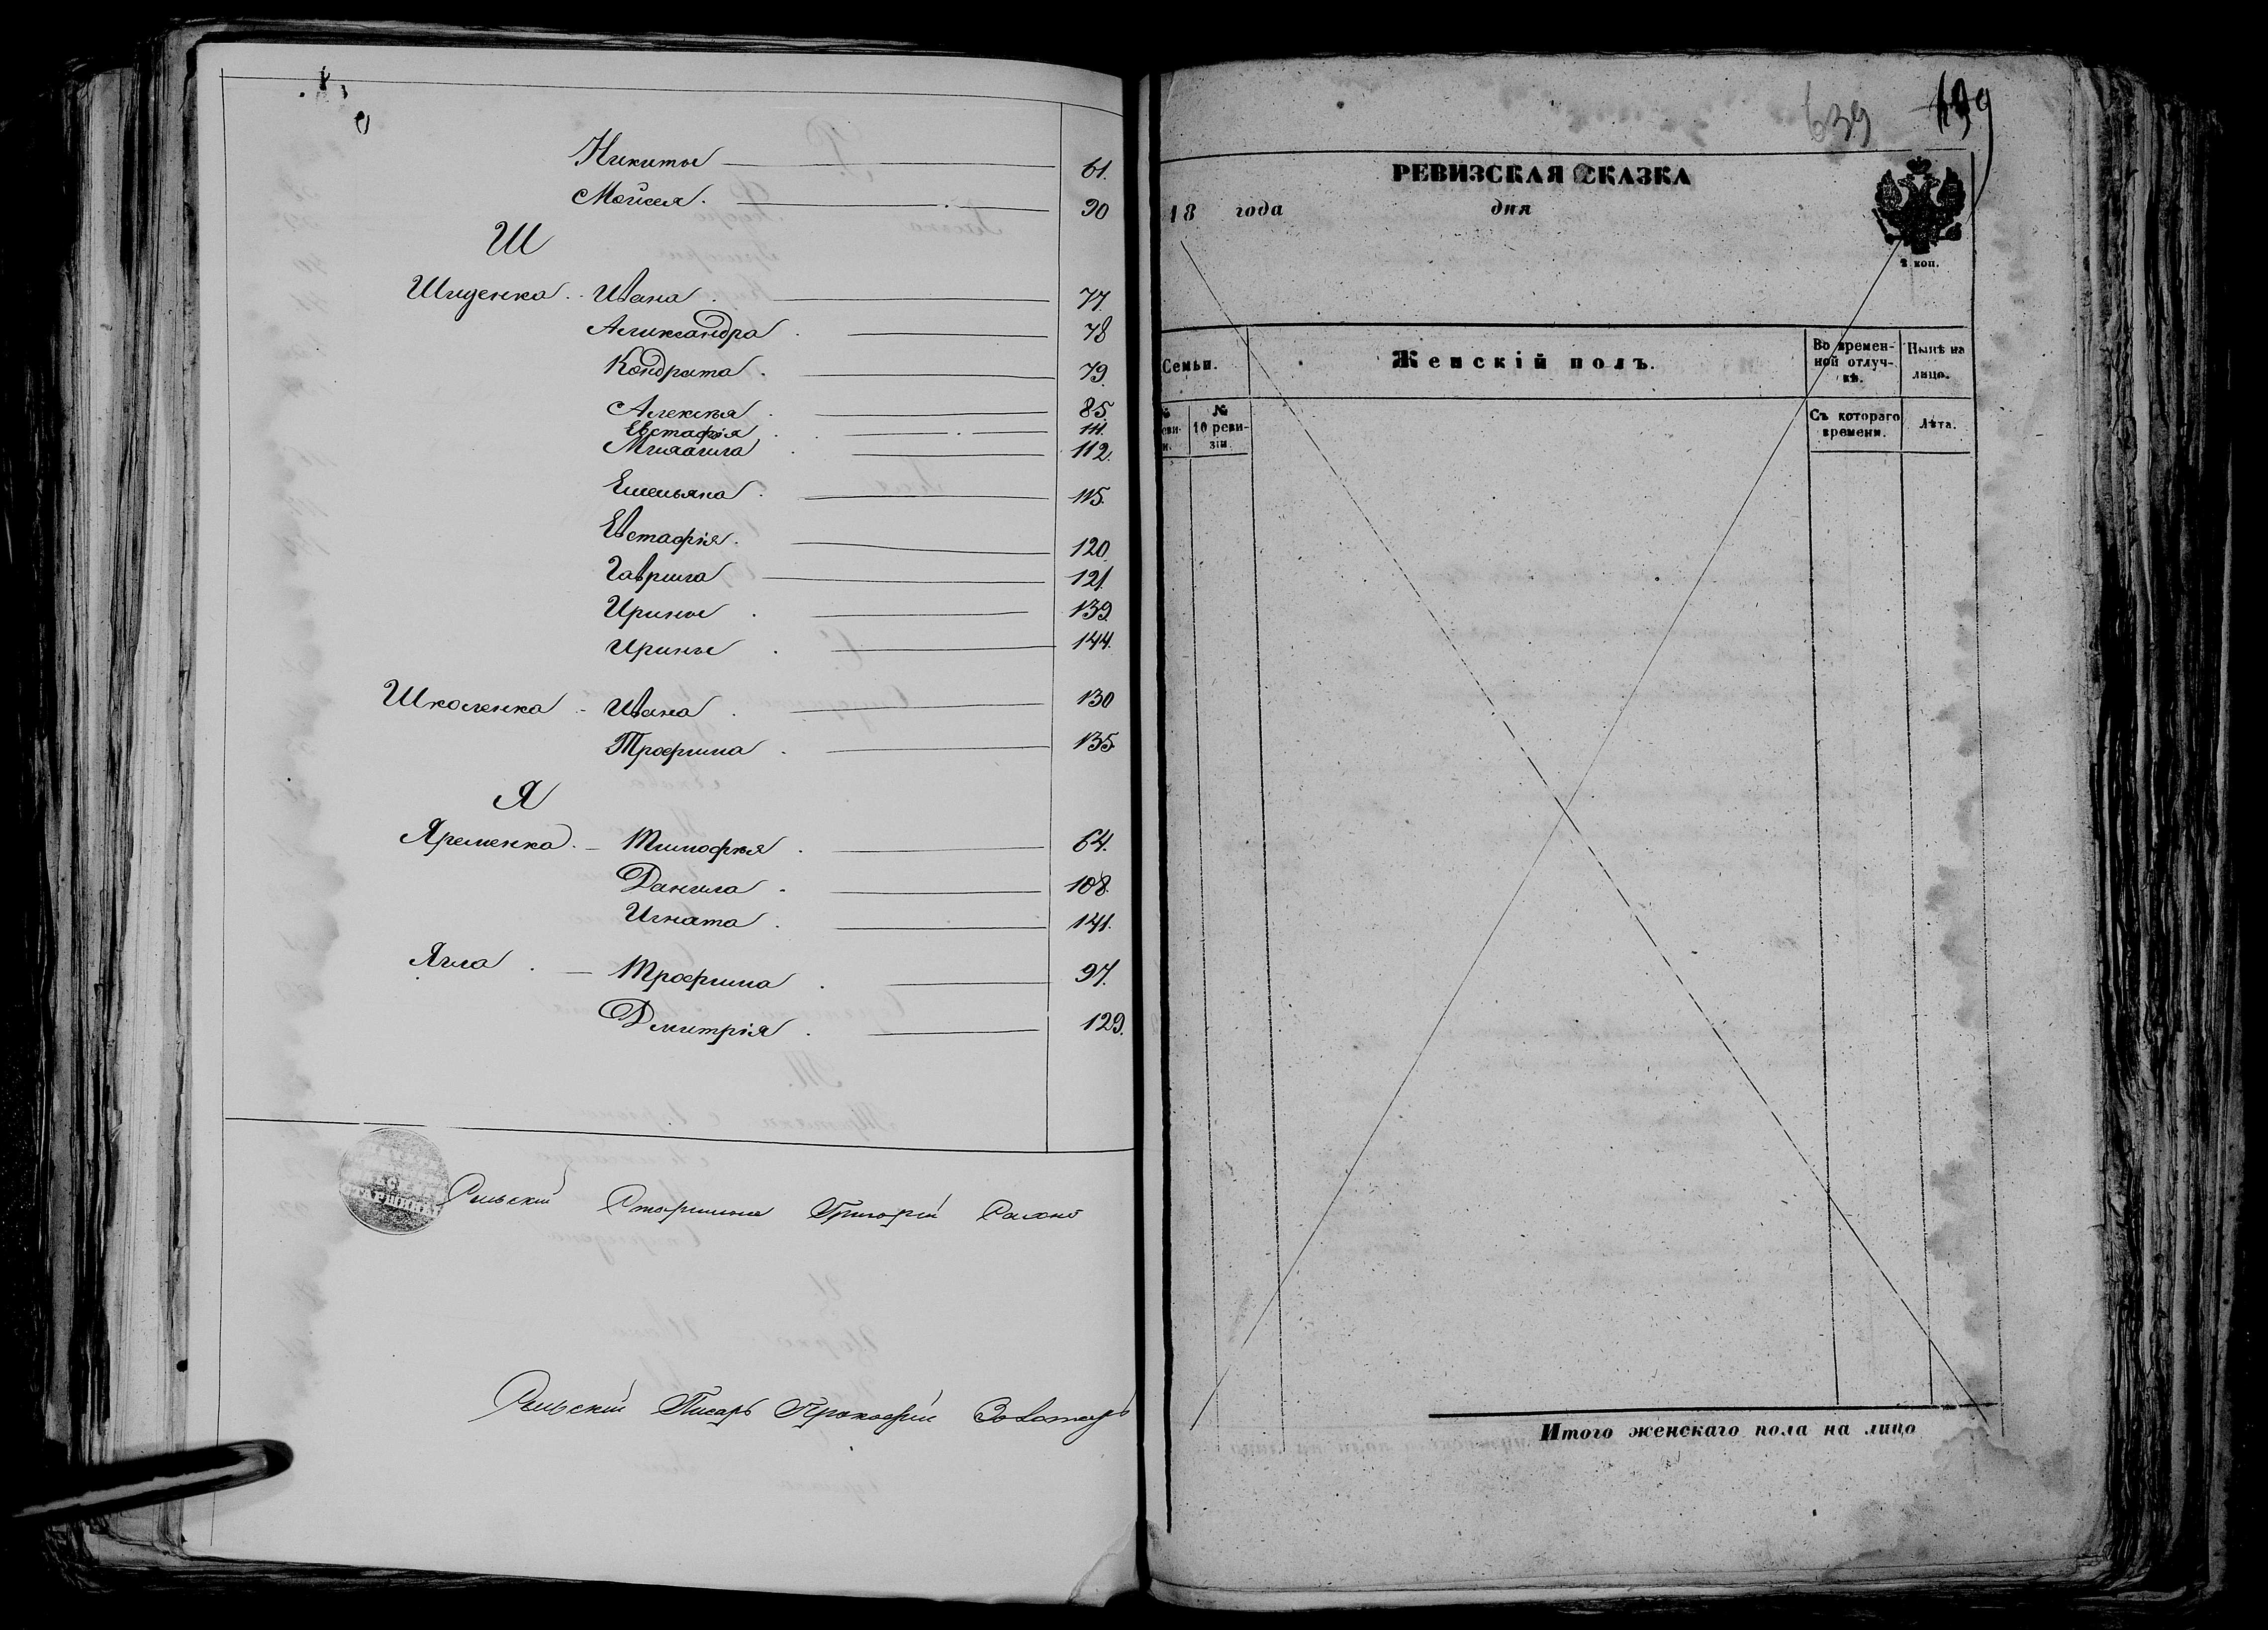 Никиты 61.
Мойсея. 90
Ш
Шиденка. Ивана. 77.
Александра. 78
Кондрата. 79.
Алексѣя. 85
Евстафія. 111.
Михаила. 112.
Емельяна. 115.
Евстафія. 120.
Гаврила 121.
Ирины. 139
Ирины. 144.
Школенка - Ивана. 130
Трофима. 135
Я
Яременка. - Тимофѣя. 64.
Данила. 108.
Игната. 141.
Ягла. - Трофима. 97.
Дмитрія. 129.
СТАРШИНА
Сельскій Старшина Григорій
Сельскій Писарь Прокофій
639
РЕВИЗСКАЯ СКАЗКА
18 года дня
2 коп.
Семьи. Женскій полъ. Во времен-ной отлуч-кѣ. Нынѣ на лицо.
№ 10 реви-зіи. Съ котораго времени. Лѣта.
Итого женскаго пола на лицо